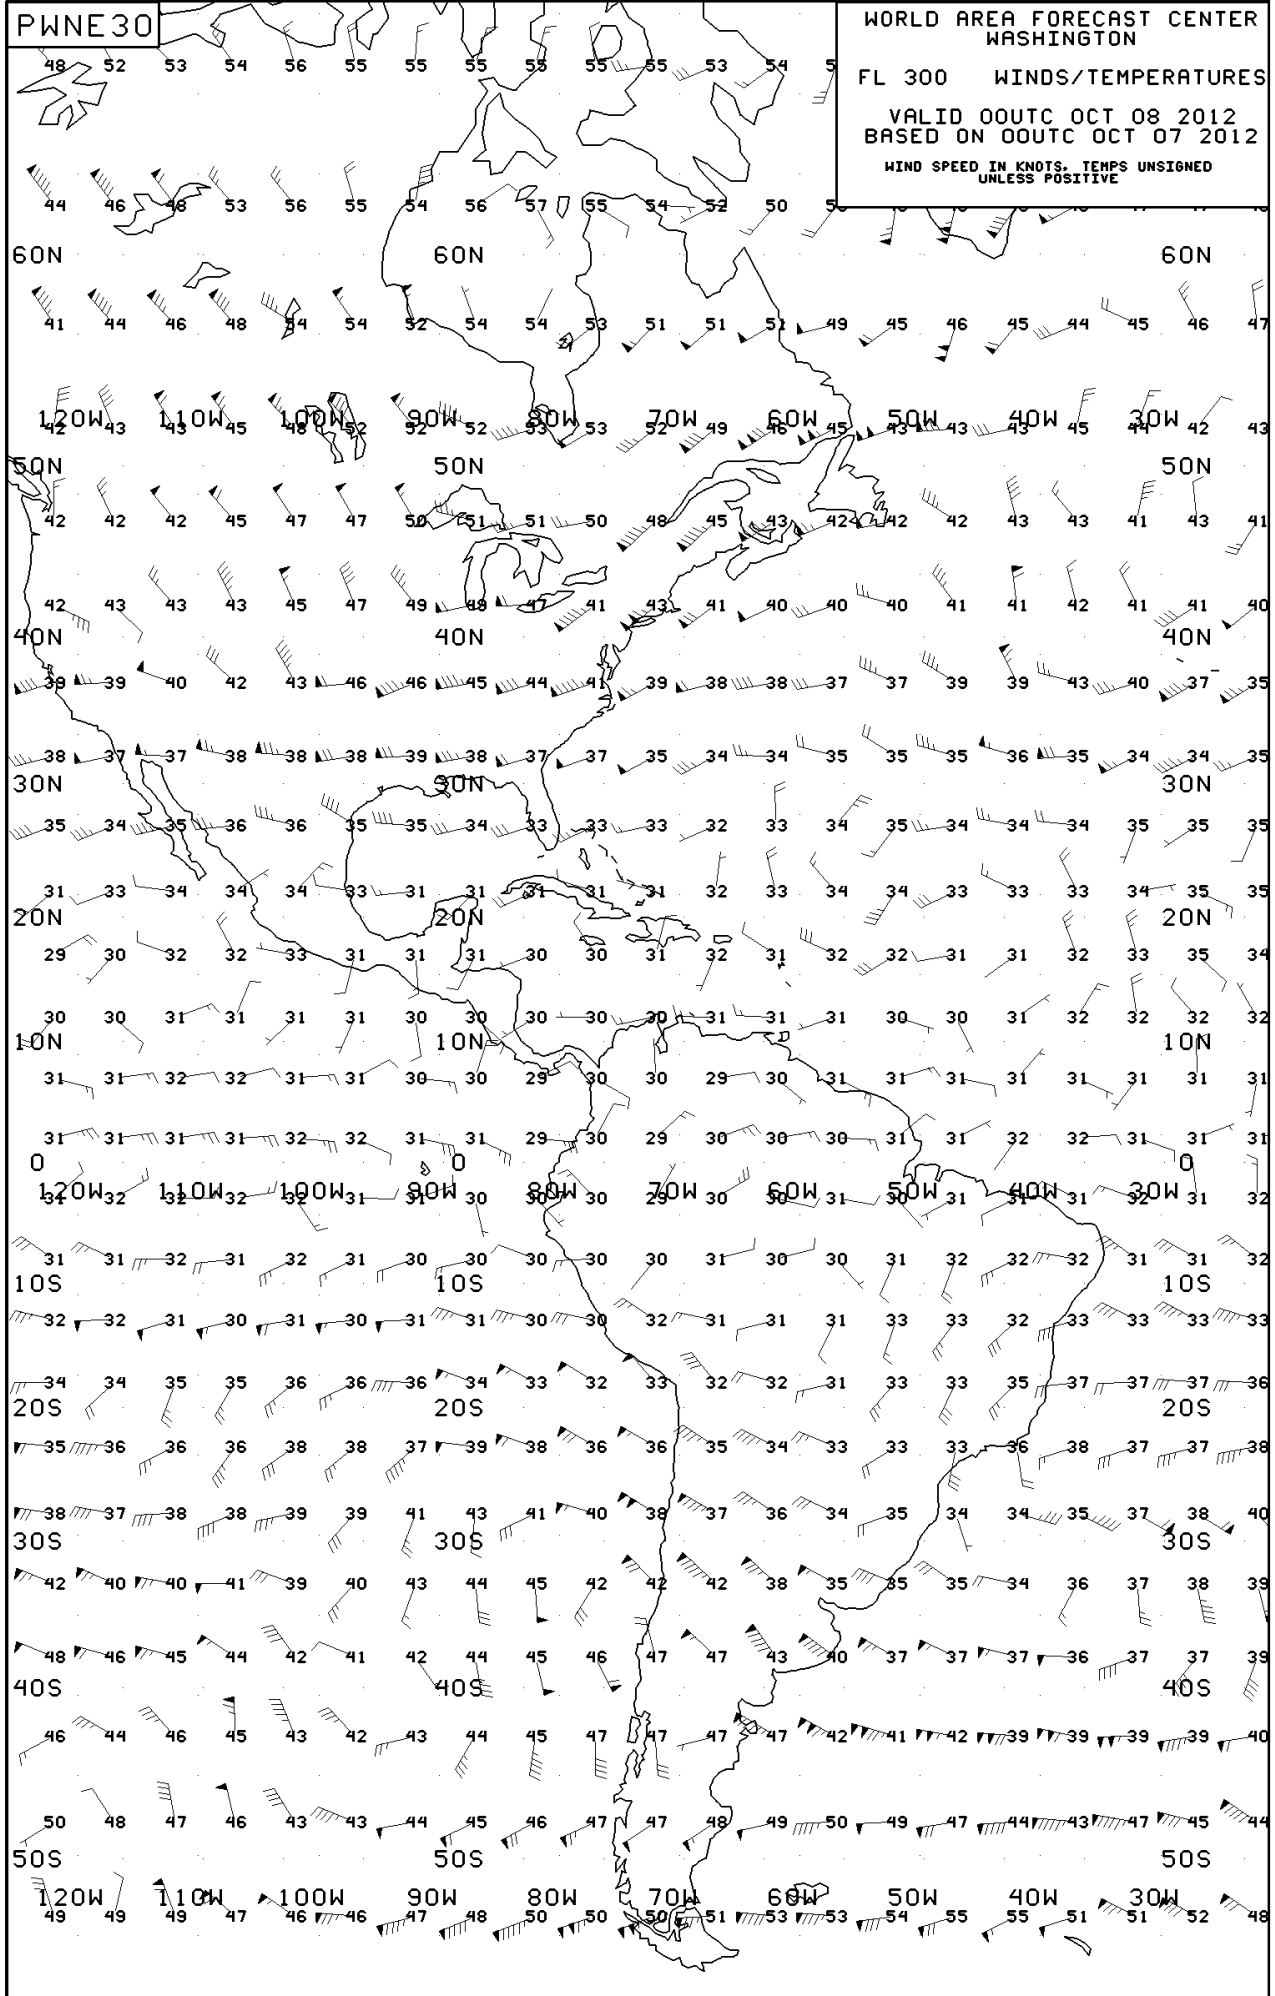 PWNE30
WORLD AREA FORECAST CENTER
WASHINGTON
FL 300 WINDS/TEMPERATURES
VALID 00UTC OCT 08 2012
BASED ON 00UTC OCT 07 2012
WIND SPEED IN KNOTS, TEMPS UNSIGNED
UNLESS POSITIVE
48 52 53 54 56 55 55 55 55 55 55 53 54
44 46 48 53 56 55 54 56 57 55 54 52 50
60N 60N 60N
41 44 46 48 54 54 52 54 54 53 51 51 51 49 45 46 45 44 45 46 47
120W 110W 100W 90W 80W 70W 60W 50W 40W 30W
42 43 43 45 48 52 52 52 53 53 52 49 46 45 43 43 43 45 44 42 43
50N 50N 50N
42 42 42 45 47 47 50 51 51 50 48 45 43 42 42 42 43 43 41 43 41
42 43 43 43 45 47 49 49 47 41 43 41 40 40 40 41 41 42 41 41 40
40N 40N 40N
39 39 40 42 43 46 46 45 44 41 39 38 38 37 37 39 39 43 40 37 35
38 37 37 38 38 38 39 38 37 37 35 34 34 35 35 35 36 35 34 34 35
30N 30N 30N
35 34 35 36 36 35 35 34 33 33 33 32 33 34 35 34 34 34 35 35 35
31 33 34 34 34 33 31 31 31 31 31 32 33 34 34 33 33 33 34 35 35
20N 20N 20N
29 30 32 32 33 31 31 31 30 30 31 32 31 32 32 31 31 32 33 35 34
30 30 31 31 31 31 30 30 30 30 30 31 31 31 30 30 31 32 32 32 32
10N 10N 10N
31 31 32 32 31 31 30 30 29 30 30 29 30 31 31 31 31 31 31 31 31
31 31 31 31 32 32 31 31 29 30 29 30 30 30 31 31 32 32 31 31 31
0 0 0
120W 110W 100W 90W 80W 70W 60W 50W 40W 30W
31 32 32 32 32 31 31 30 30 30 29 30 30 31 30 31 31 31 32 31 32
31 31 32 31 32 31 30 30 30 30 30 31 30 30 31 32 32 32 31 31 32
10S 10S 10S
32 32 31 30 31 30 31 31 30 30 32 31 31 31 33 33 32 33 33 33 33
34 34 35 35 36 36 36 34 33 32 33 32 32 31 33 33 35 37 37 37 36
20S 20S 20S
35 36 36 36 38 38 37 39 38 36 36 35 34 33 33 33 36 38 37 37 38
38 37 38 38 39 39 41 43 41 40 38 37 36 34 35 34 34 35 37 38 40
30S 30S 30S
42 40 40 41 39 40 43 44 45 42 42 42 38 35 35 35 34 36 37 38 39
48 46 45 44 42 41 42 44 45 46 47 47 43 40 37 37 37 36 37 37 39
40S 40S 40S
46 44 46 45 43 42 43 44 45 47 47 47 47 42 41 42 39 39 39 39 40
50 48 47 46 43 43 44 45 46 47 47 48 49 50 49 47 44 43 47 45 44
50S 50S 50S
120W 110W 100W 90W 80W 70W 60W 50W 40W 30W
49 49 49 47 46 46 47 48 50 50 50 51 53 53 54 55 55 51 51 52 48